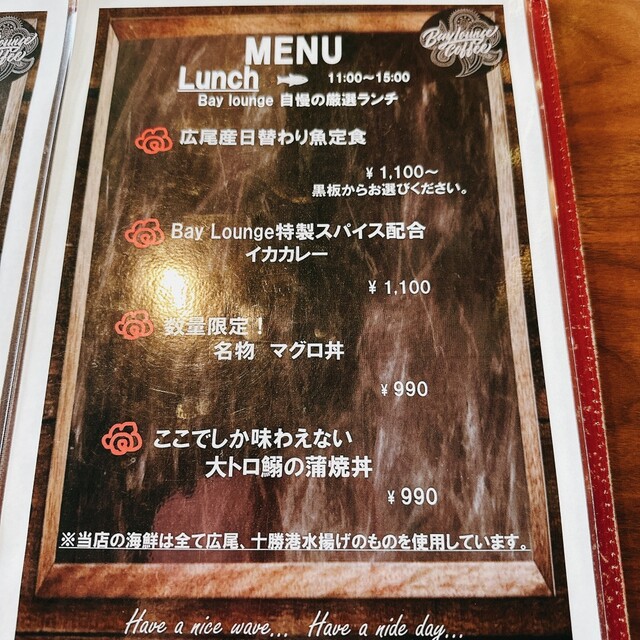 Bay Lounge
Coffee
MENU
Lunch 11:00～15:00
Bay lounge 自慢の厳選ランチ
広尾産日替わり魚定食
¥ 1,100～
黒板からお選びください。
Bay Lounge特製スパイス配合
イカカレー
¥ 1,100
数量限定！
名物 マグロ丼
¥ 990
ここでしか味わえない
大トロ鰯の蒲焼丼
¥ 990
※当店の海鮮は全て広尾、十勝港水揚げのものを使用しています。
Have a nice wave... Have a nide day...